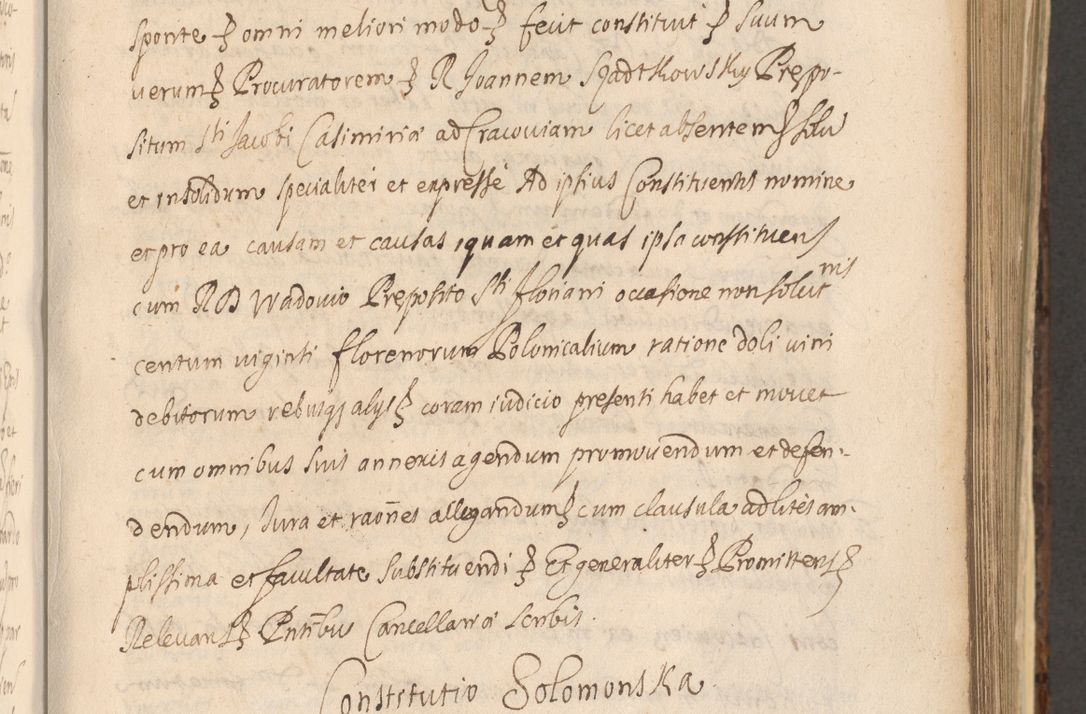 sponte etc omni meliori modo etc fecit constituit etc suum
verum etc Procuratorem etc R Joannem Szadtkowsky Prepo-
situm Sti Jacobi Casimiriæ ad Cracoviam licet absentem etc
et insolidum specialiter et expressè Ad ipsius Constituentis nomine
et pro ea causam et causas, quam et quas ipsa constituens
cum RD Wadovio Preposito Sti Floriani occasione non solutionis
centum viginti florenorum Polonicalium ratione doli vini
debitorum rebusqs alys etc coram iudicio presenti habet et movet
cum omnibus suis annexis agendum promovendum et defen-
dendum, Iura et raões allegandum etc cum clausula ad lites am-
plissima et facultate substituendi etc Et generaliter etc Promittens etc
Relevans etc Pntibus Cancellariæ scribis.
Constitutio Solomonska